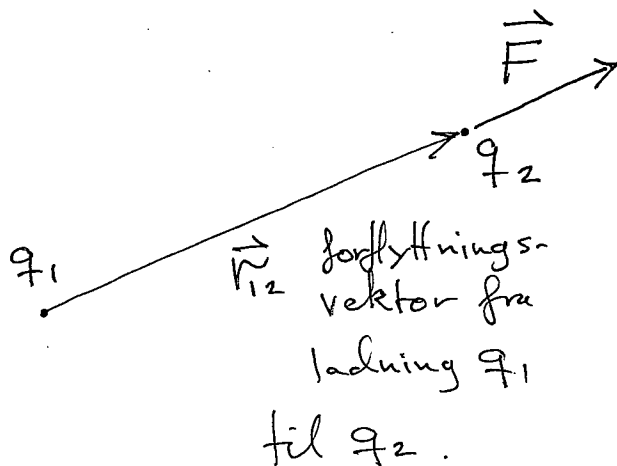 F⃗
q₂
q₁
r⃗₁₂ forflyttnings-
vektor fra
ladning q₁
til q₂.